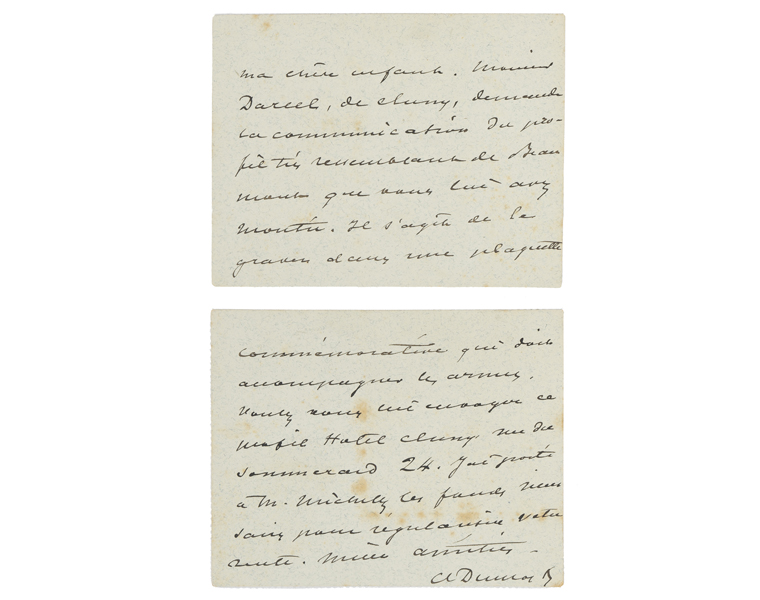 ma chère enfant. Monsieur
Darcel, de Cluny, demande
la communication du pro-
fil très ressemblant de Beau
mont que vous lui avez
montré. Il s'agit de le
graver dans une plaquette
commémorative qui doit
accompagner les armes.
Voulez vous lui envoyer ce
profil Hotel Cluny rue du
Sommerard 24. J'ai porté
à M. les fonds néces
saires pour régulariser votre
rente. Mille amitiés -
A Dumas f